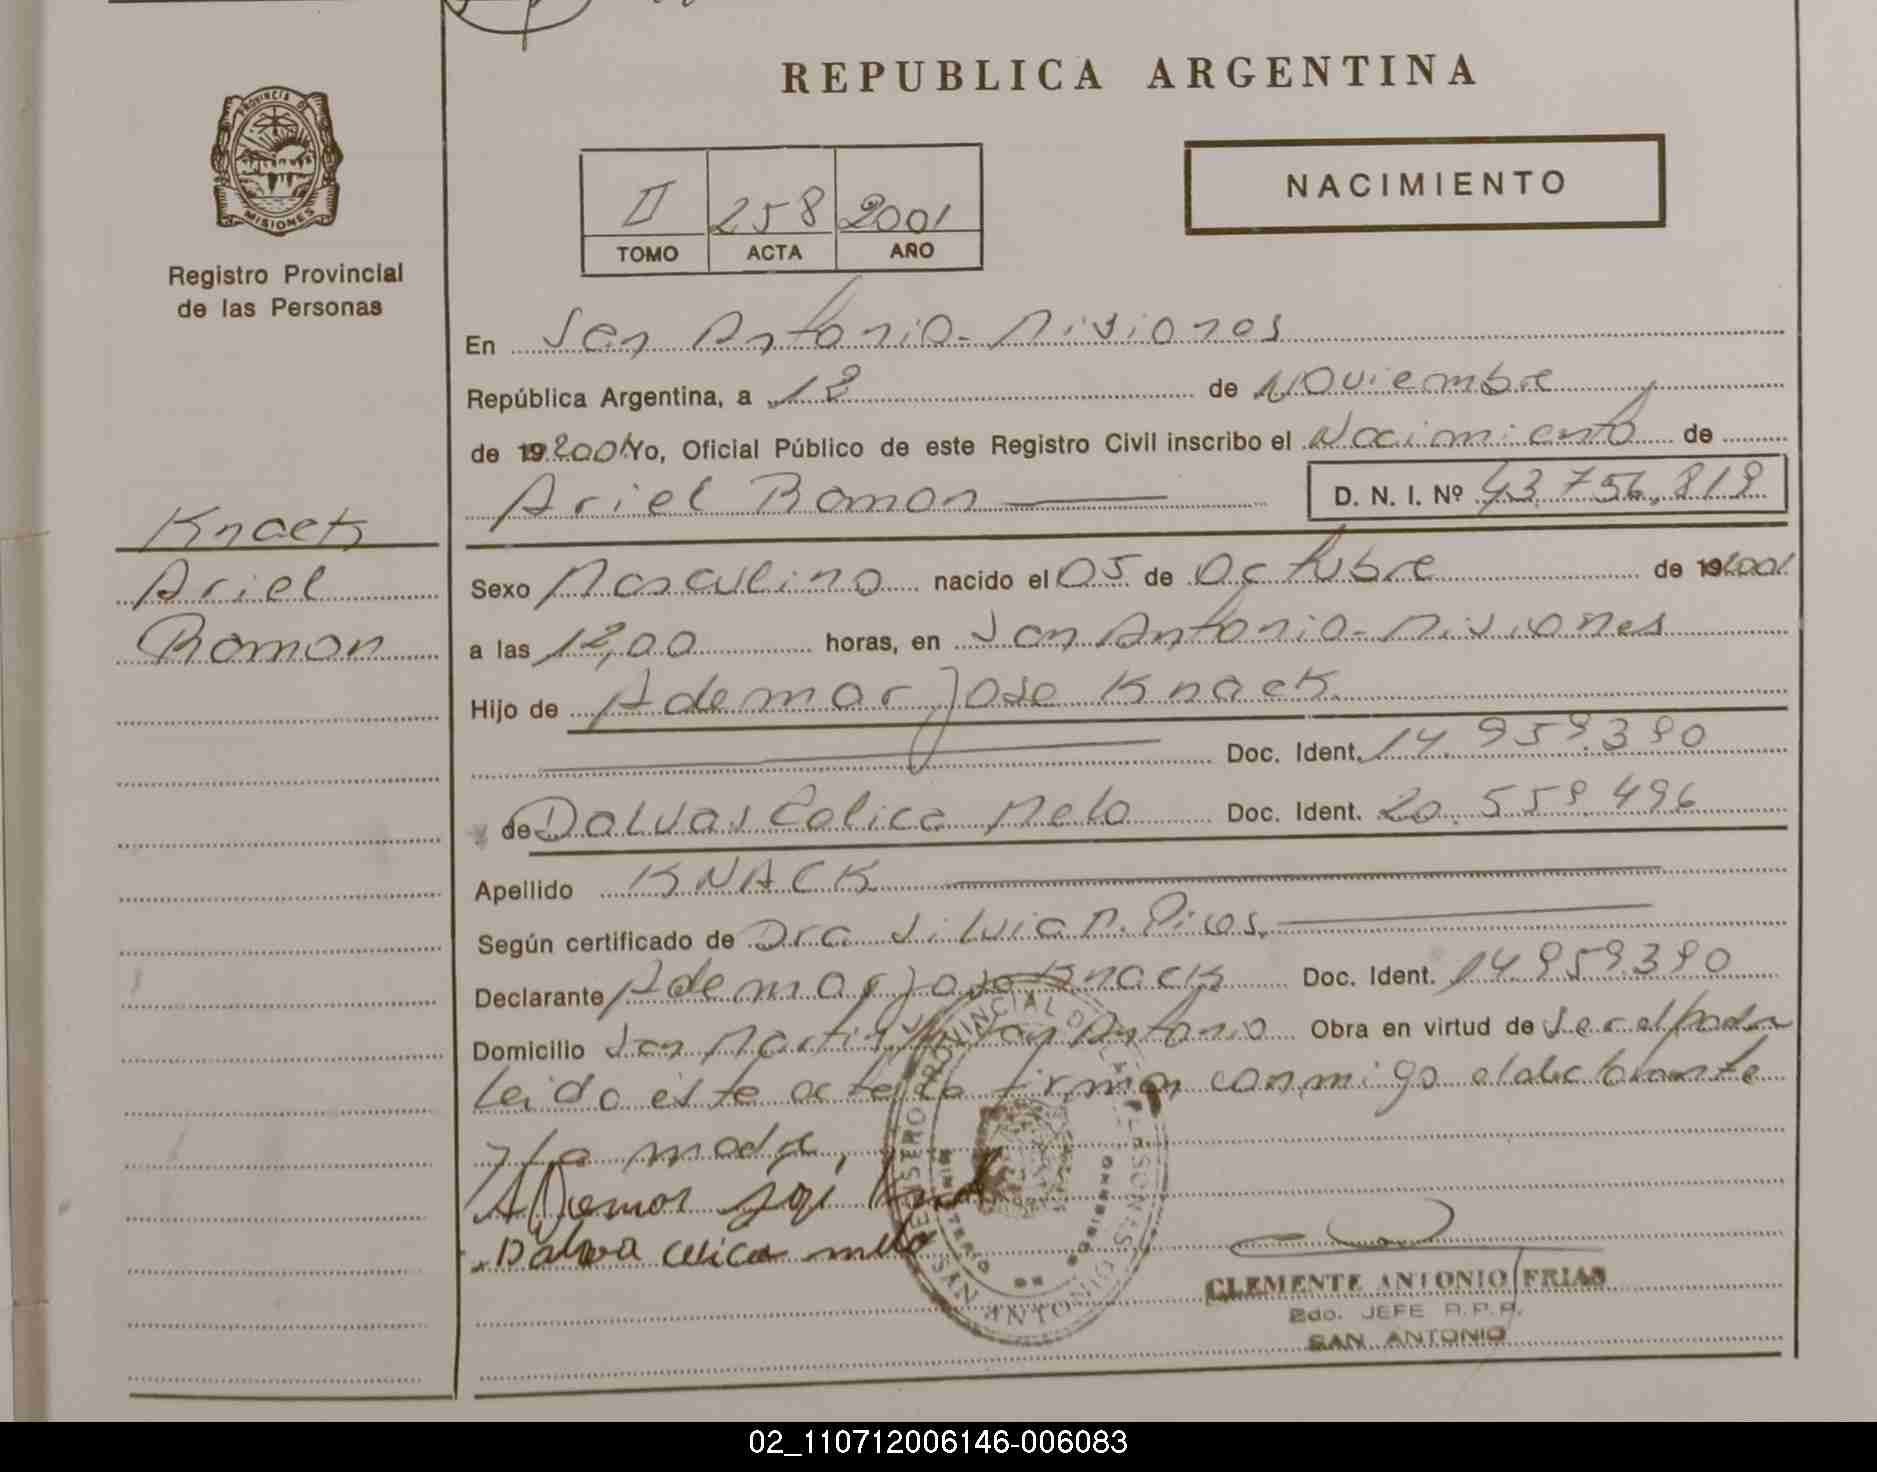 REPUBLICA ARGENTINA
PROVINCIA DE
MISIONES
Registro Provincial
de las Personas
II 258 2001
TOMO ACTA AÑO
NACIMIENTO
En San Antonio - Misiones
República Argentina, a 12 de Noviembre
de 19 2001 Yo, Oficial Público de este Registro Civil inscribo el Nacimiento de
Ariel Ramon D. N. I. Nº 43.756.819
Knack
Ariel
Ramon
Sexo Masculino nacido el 05 de Octubre de 19 2001
a las 12,00 horas, en San Antonio - Misiones
Hijo de Ademar Jose Knack
Doc. Ident. 14.959.390
de Dalvas Celica Melo Doc. Ident. 20.559.496
Apellido KNACK
Según certificado de Dra Silvia M.
Declarante Ademar Jose Knack Doc. Ident. 14.959.390
Domicilio San Martin San Antonio Obra en virtud de ser el padre
Leido este acta la firman conmigo el declarante
y la madre,
Ademar
Dalva celica melo
REGISTRO PROVINCIAL DE LAS PERSONAS
SAN ANTONIO
MINISTERIO DE GOBIERNO
CLEMENTE ANTONIO FRIAS
JEFE R.P.P.
SAN ANTONIO
02_110712006146-006083